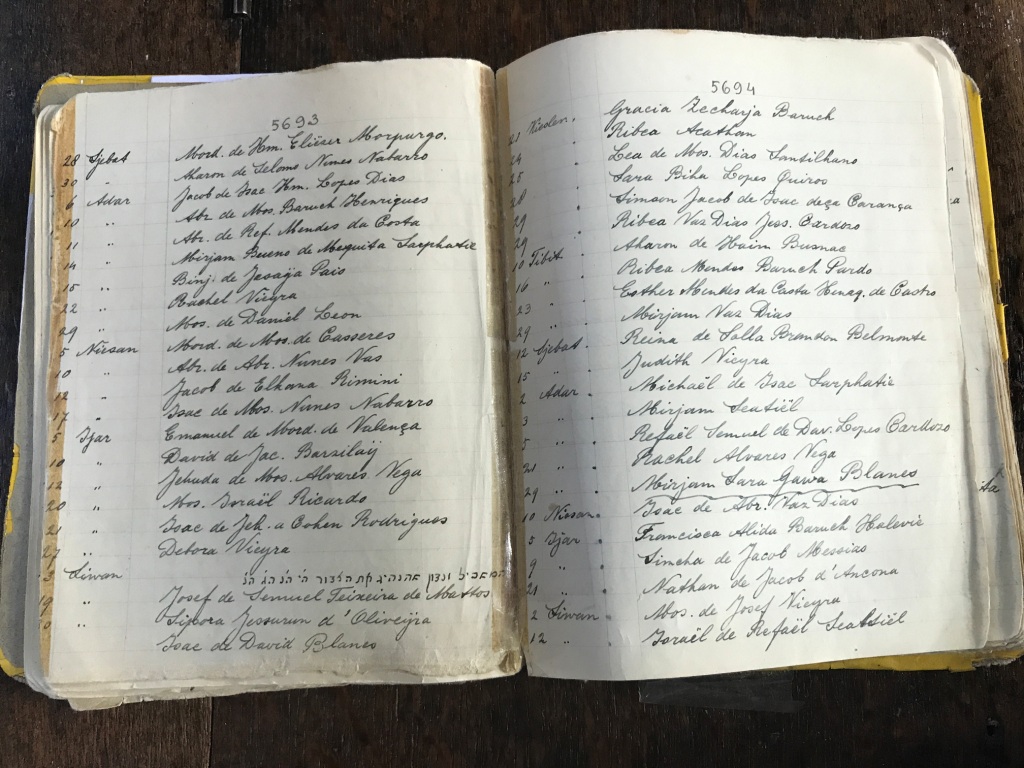 5693
28 Sjebat Mord. de Hm. Eliëser Morpurgo.
30 " Aharon de Selomo Nunes Nabarro
6 Adar Jacob de Isac Hm. Lopes Dias
10 " Abr. de Mos. Baruch Henriques
11 " Abr. de Ref. Mendes da Costa
14 " Mirjam Bueno de Mesquita Sarphatie
15 " Binj. de Jesaja Pais
22 " Rachel Vieyra
29 " Mos. de Daniel Leon
5 Niesan Mord. de Mos. de Casseres
10 " Abr. de Abr. Nunes Vas
12 " Jacob de Elhana Rimini
17 " Isac de Mos. Nunes Nabarro
5 Ijar Emanuel de Mord. de Valença
10 " David de Jac. Barzilaij
12 " Jehuda de Mos. Alvares Vega
20 " Mos. Israël Ricardo
21 " Isac de Jeh. a Cohen Rodrigues
27 " Debora Vieyra
3 Siwan
19 " Josef de Semuel Teixeira de Mattos
Sipora Jessurun d'Oliveijra
Isac de David Blanes
5694
21 Kieslev. Gracia Zecharja Baruch
24 " Ribca Acathan
25 " Lea de Mos. Dias Santilhano
28 " Sara Biha Lopes Quiros
29 " Simson Jacob de Isac deça Carança
29 " Ribca Vaz Dias Jess. Cardozo
10 Tibit Aharon de Haim Busnac
16 " Ribca Mendes Baruch Pardo
23 " Esther Mendes da Costa Henaq. de Castro
29 " Mirjam Vaz Dias
12 Sjebat Reina de Solla Brandon Belmonte
15 " Judith Vieyra
2 Adar Michaël de Isac Sarphatie
3 " Mirjam Sealtiël
5 " Refaël Semuel de Dav. Lopes Cardozo
21 " Rachel Alvares Vega
29 " Mirjam Sara Gawa Blanes
10 Niesan Isac de Abr. Vaz Dias
5 Ijar Francisca Alida Baruch Halevie
9 " Simcha de Jacob Messias
21 " Nathan de Jacob d'Ancona
2 Siwan Mos. de Josef Vieyra
12 " Israël de Refaël Sealtiël